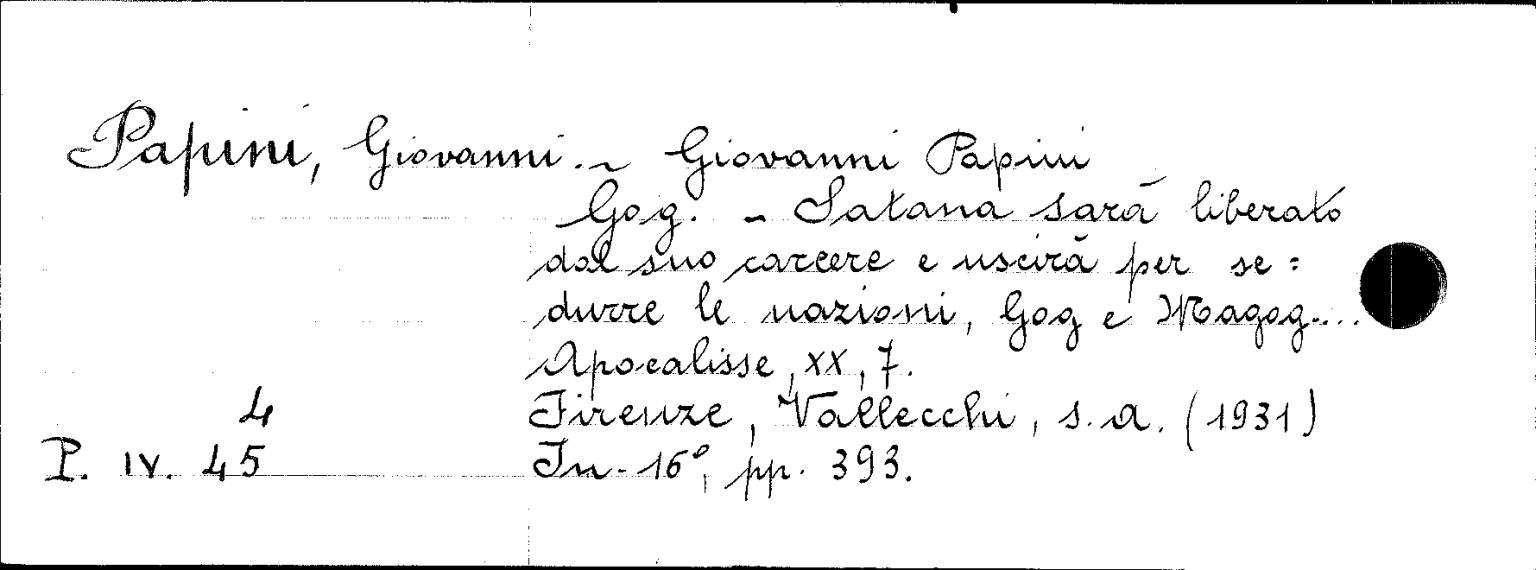 Papini, Giovanni. - Giovanni Papini
Gog. - Satana sarà liberato
dal suo carcere e uscirà per se=
durre le nazioni, Gog e Magog....
Apocalisse, XX, 7.
4 Firenze, Vallecchi, s.a. (1931)
P. IV. 45 In-16°, pp. 393.